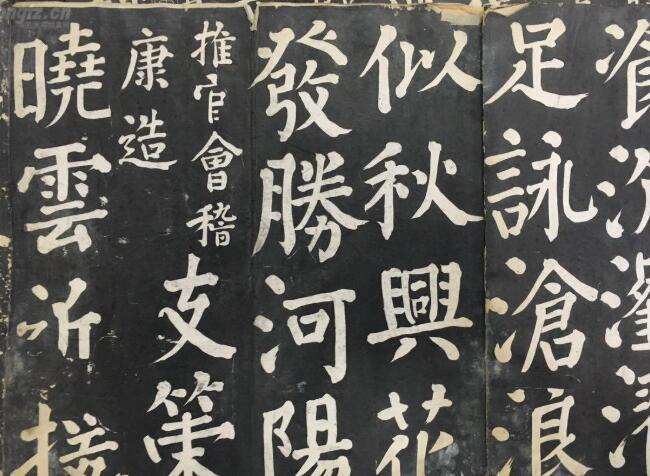 足詠滄浪
似秋興花
發勝河陽
推官會稽
康造
支策
曉雲近接